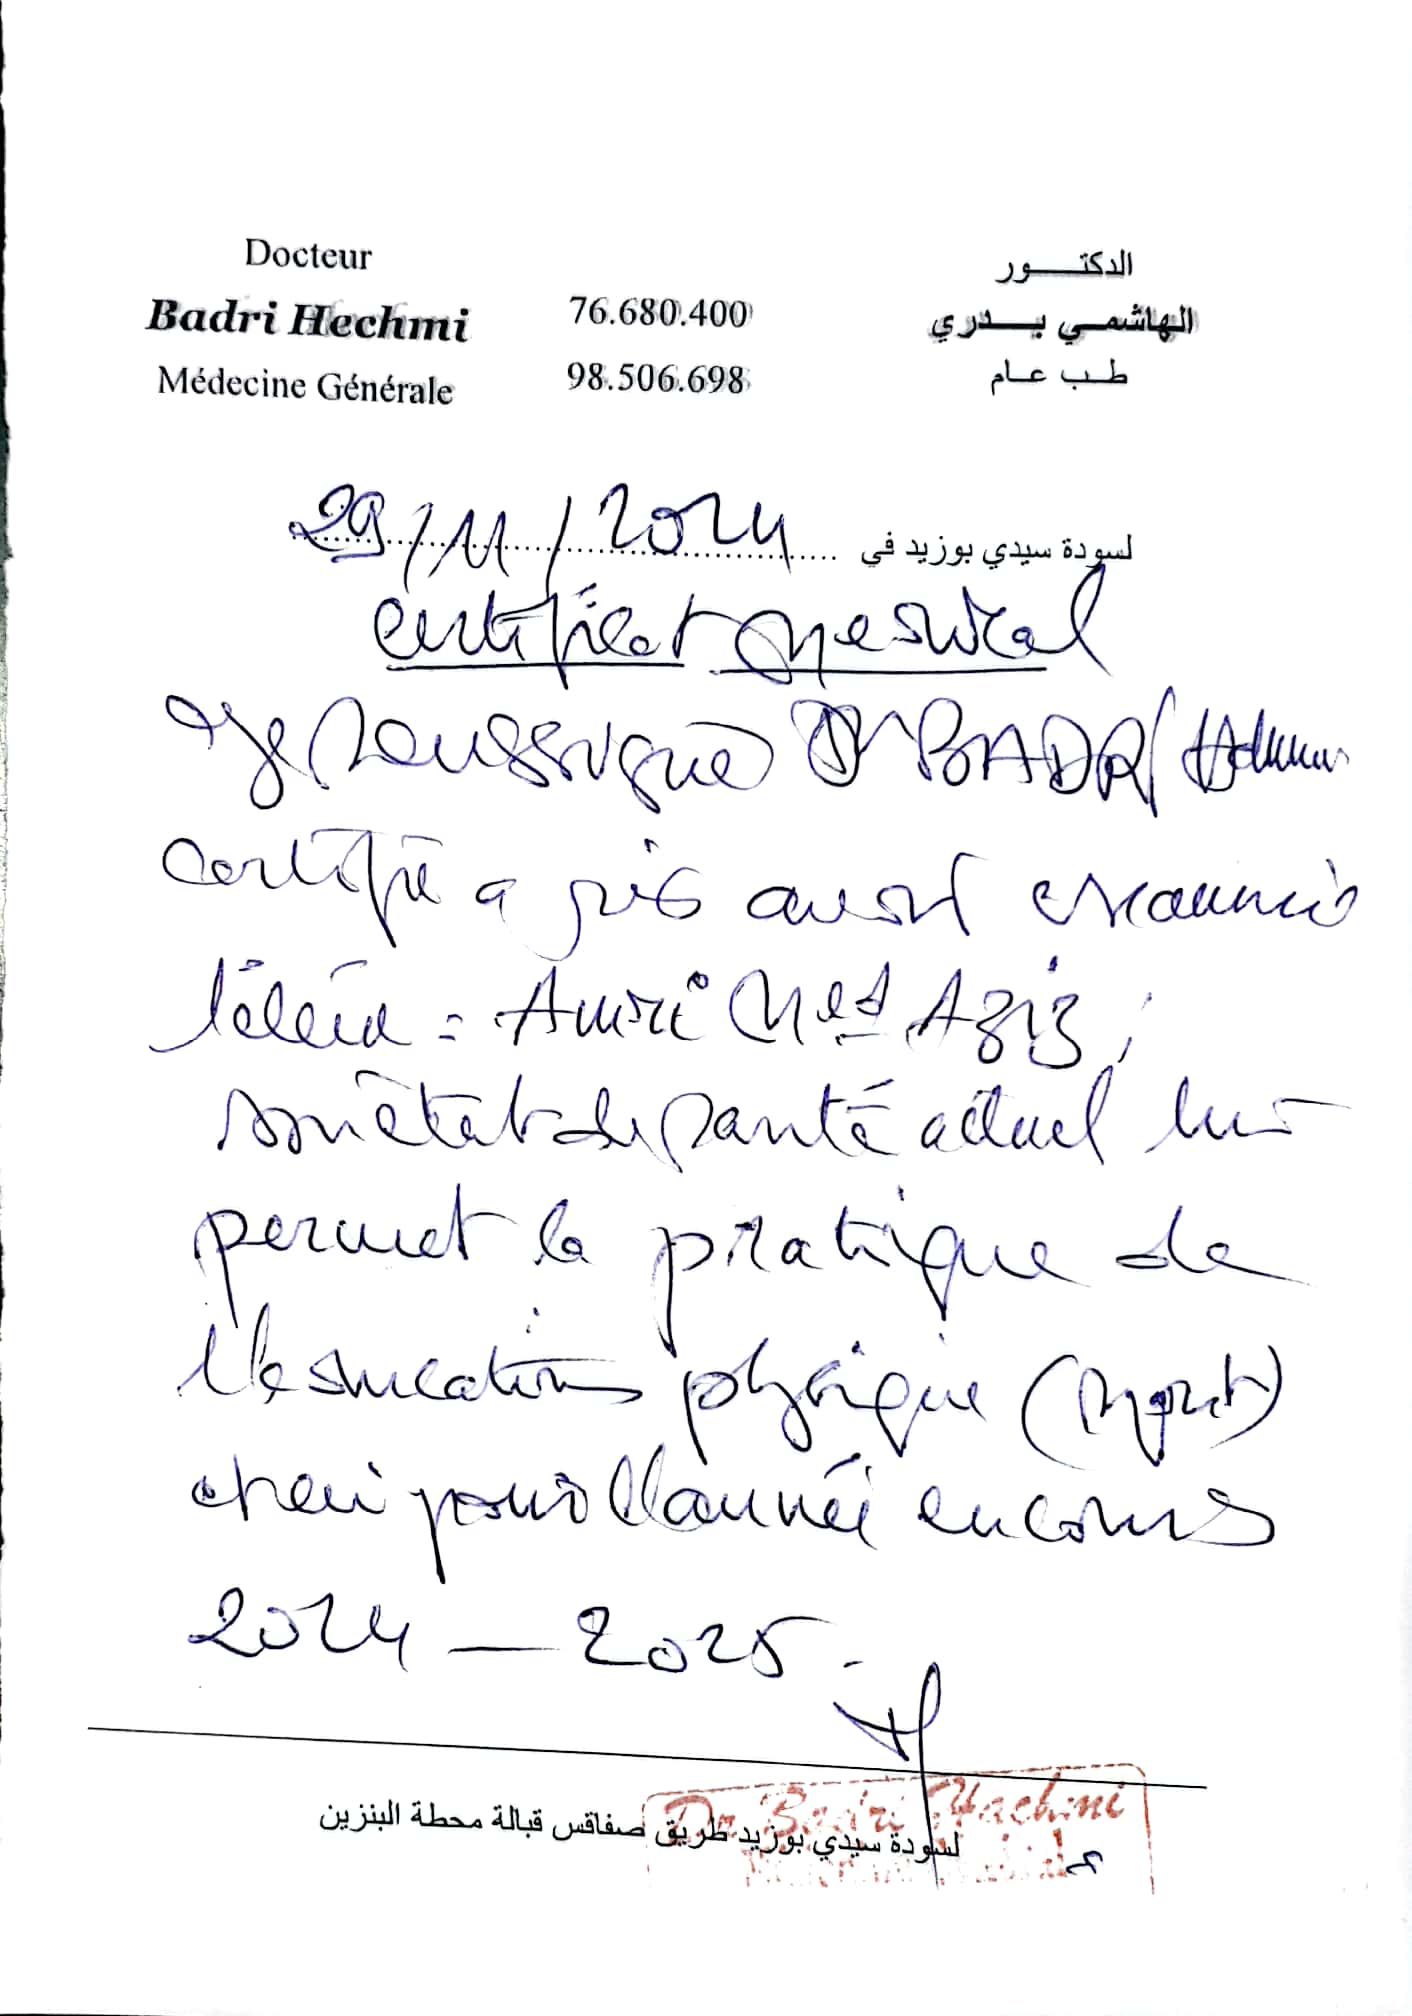 Docteur
Badri Hechmi
Médecine Générale
76.680.400
98.506.698
الدكتـــــور
الهاشمـــي بـــدري
طــب عــام
لسودة سيدي بوزيد في 29/11/2024
Certificat Medical
Je soussigné Dr BADRI
certifie avoir examiné
l'élève : Amri Med Aziz ;
son état de santé actuel lui
permet la pratique de
l'éducation physique (sport)
pour l'année en cours
2024 — 2025.
لسودة سيدي بوزيد طريق صفاقس قبالة محطة البنزين
Dr. Badri Hachmi